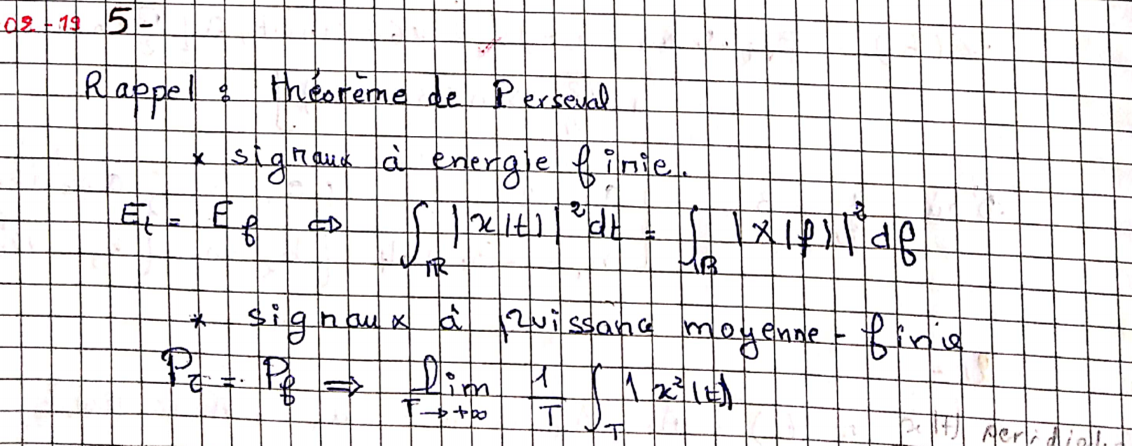 02-19 5-
Rappel : théorème de Perseval
* signaux à energie finie.
E_t = E_f ⇔ ∫_ℝ |x(t)|² dt = ∫_ℝ |X(f)|² df
* signaux à puissance moyenne-finie
P_t = P_f ⇒ lim_{T→+∞} 1/T ∫_T |x²(t)|
x(t)